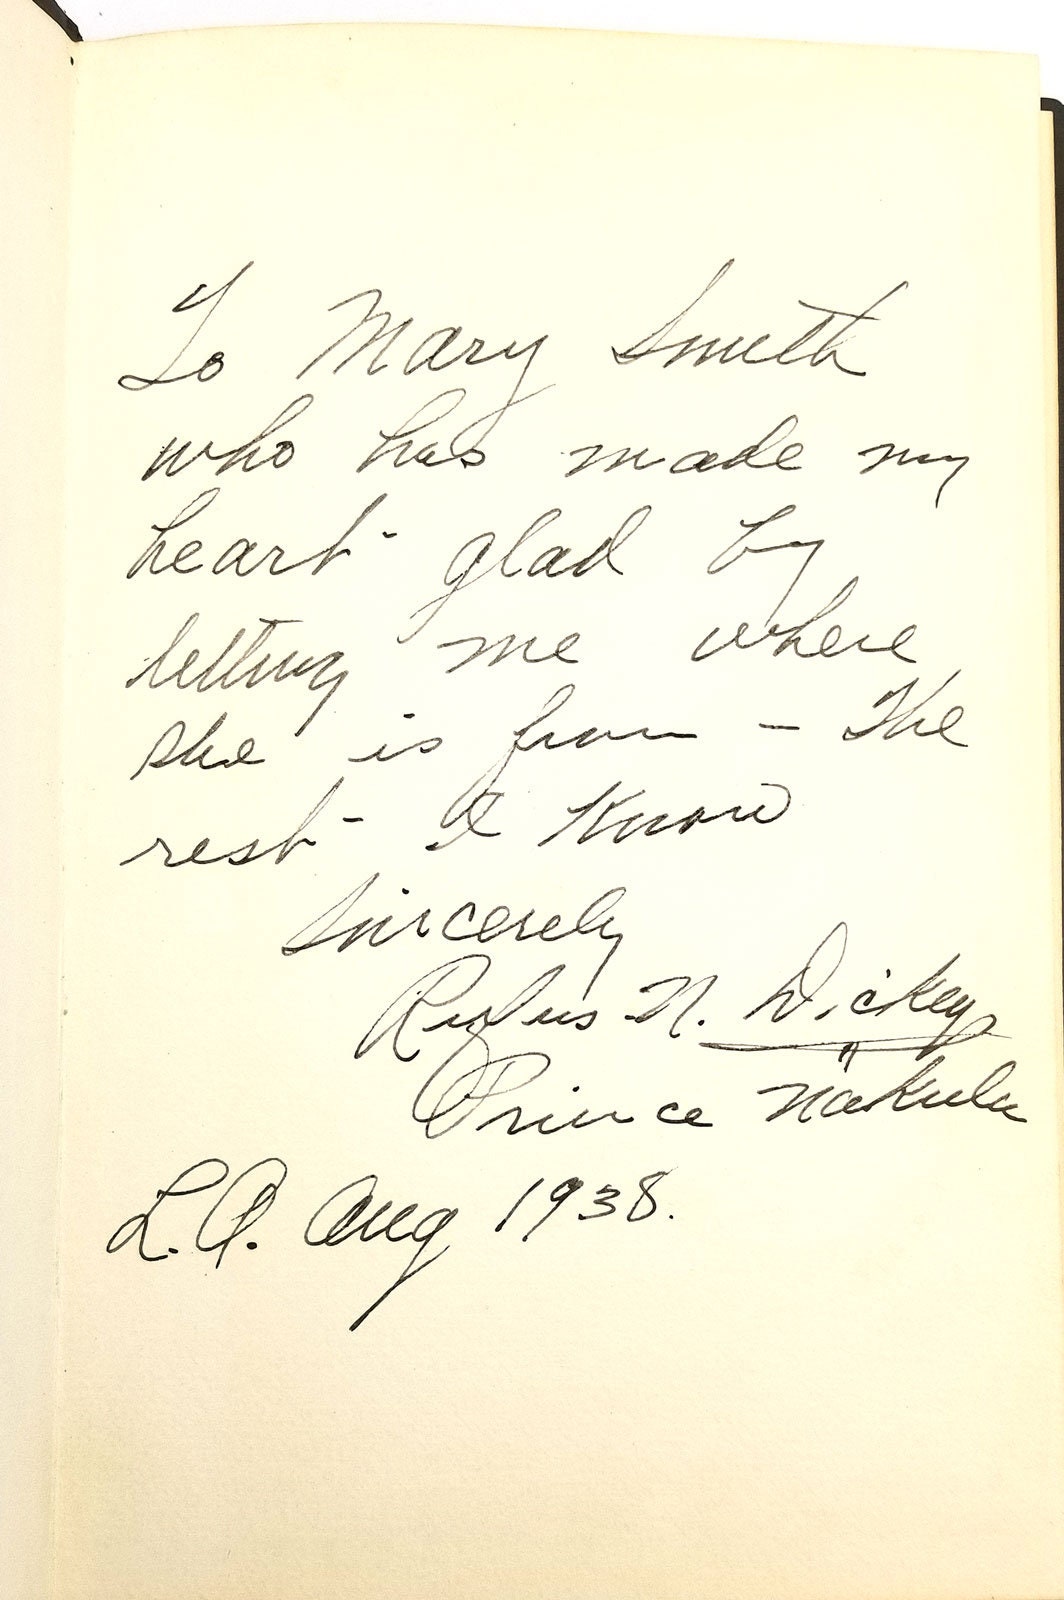 To Mary Smith
who has made my
heart glad by
letting me where
she is from - The
rest I Know
Sincerely
Rufus N. Dickey
"Prince Nakula
L.A. Aug 1938.